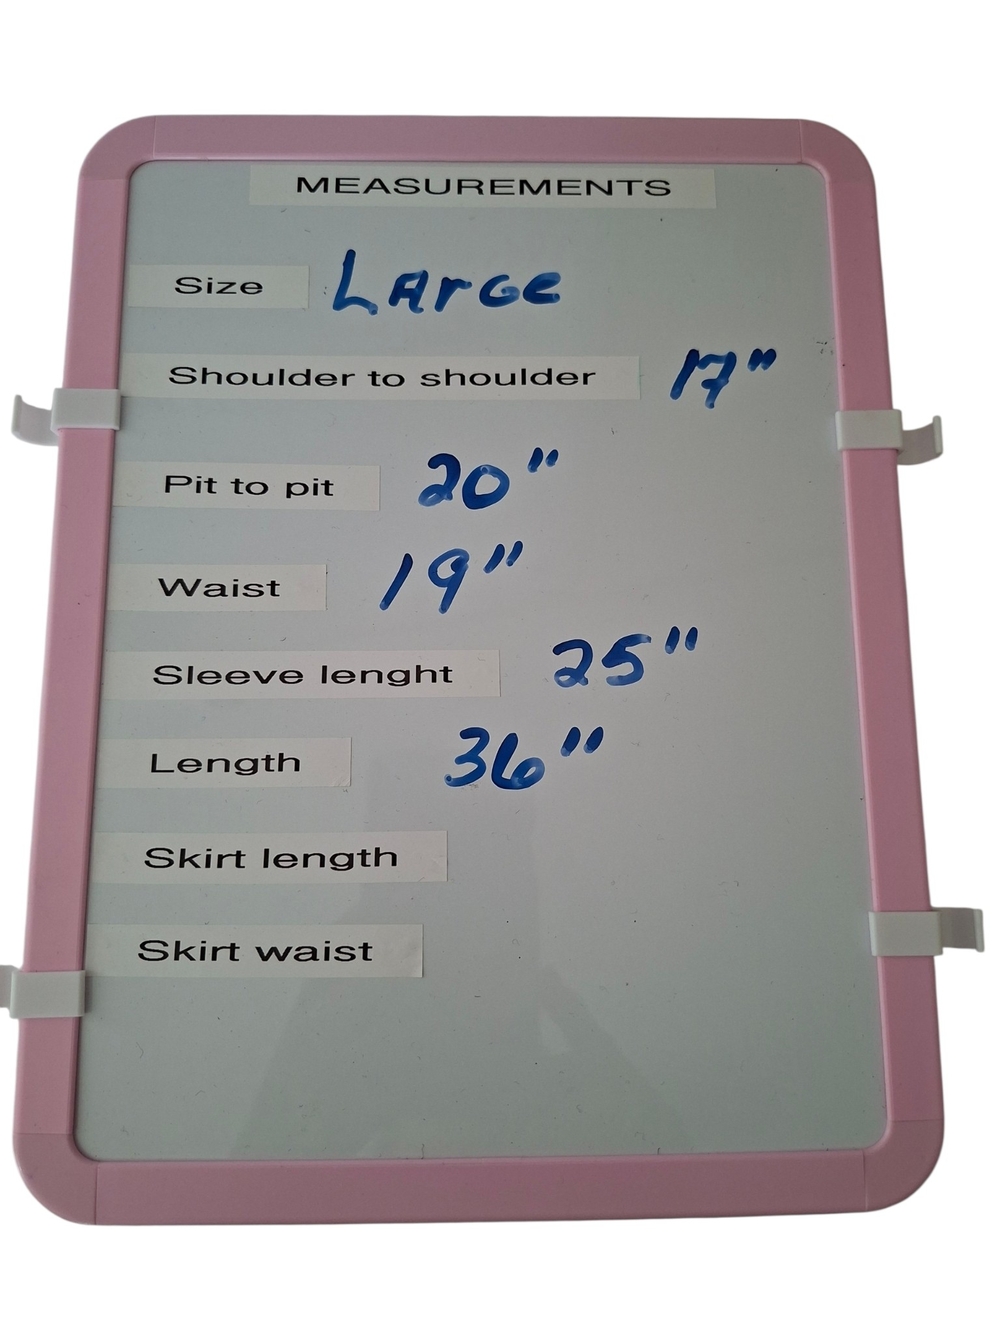 MEASUREMENTS
Size LArGe
Shoulder to shoulder 17"
Pit to pit 20"
Waist 19"
Sleeve lenght 25"
Length 36"
Skirt length
Skirt waist